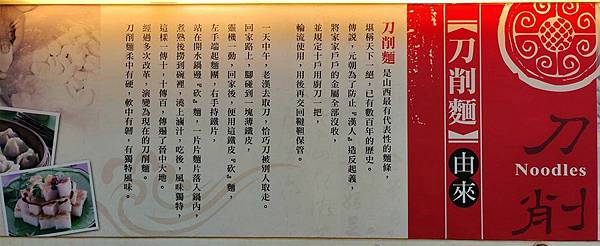 【刀削麵】由來
刀削
Noodles
刀削麵 是山西最有代表性的麵條，
堪稱天下一絕，已有數百年的歷史。
傳說，元朝為了防止『漢人』造反起義，
將家家戶戶的金屬全部沒收，
並規定十戶用廚刀一把，
輪流使用，用後再交回韃靼保管。
一天中午，老漢去取刀，恰巧刀被別人取走。
回家路上，腳碰到一塊薄鐵皮，
靈機一動，回家後，便用這鐵皮『砍』麵，
左手端起麵團，右手持鐵片，
站在開水鍋邊『砍』麵，一片片麵片落入鍋內，
煮熟後撈到碗裡，澆上鹵汁，吃後，風味獨特，
這樣一傳十，十傳百，傳遍了晉中大地。
經過多次改革，演變為現在的刀削麵。
刀削麵柔中有硬，軟中有韌，有獨特風味。